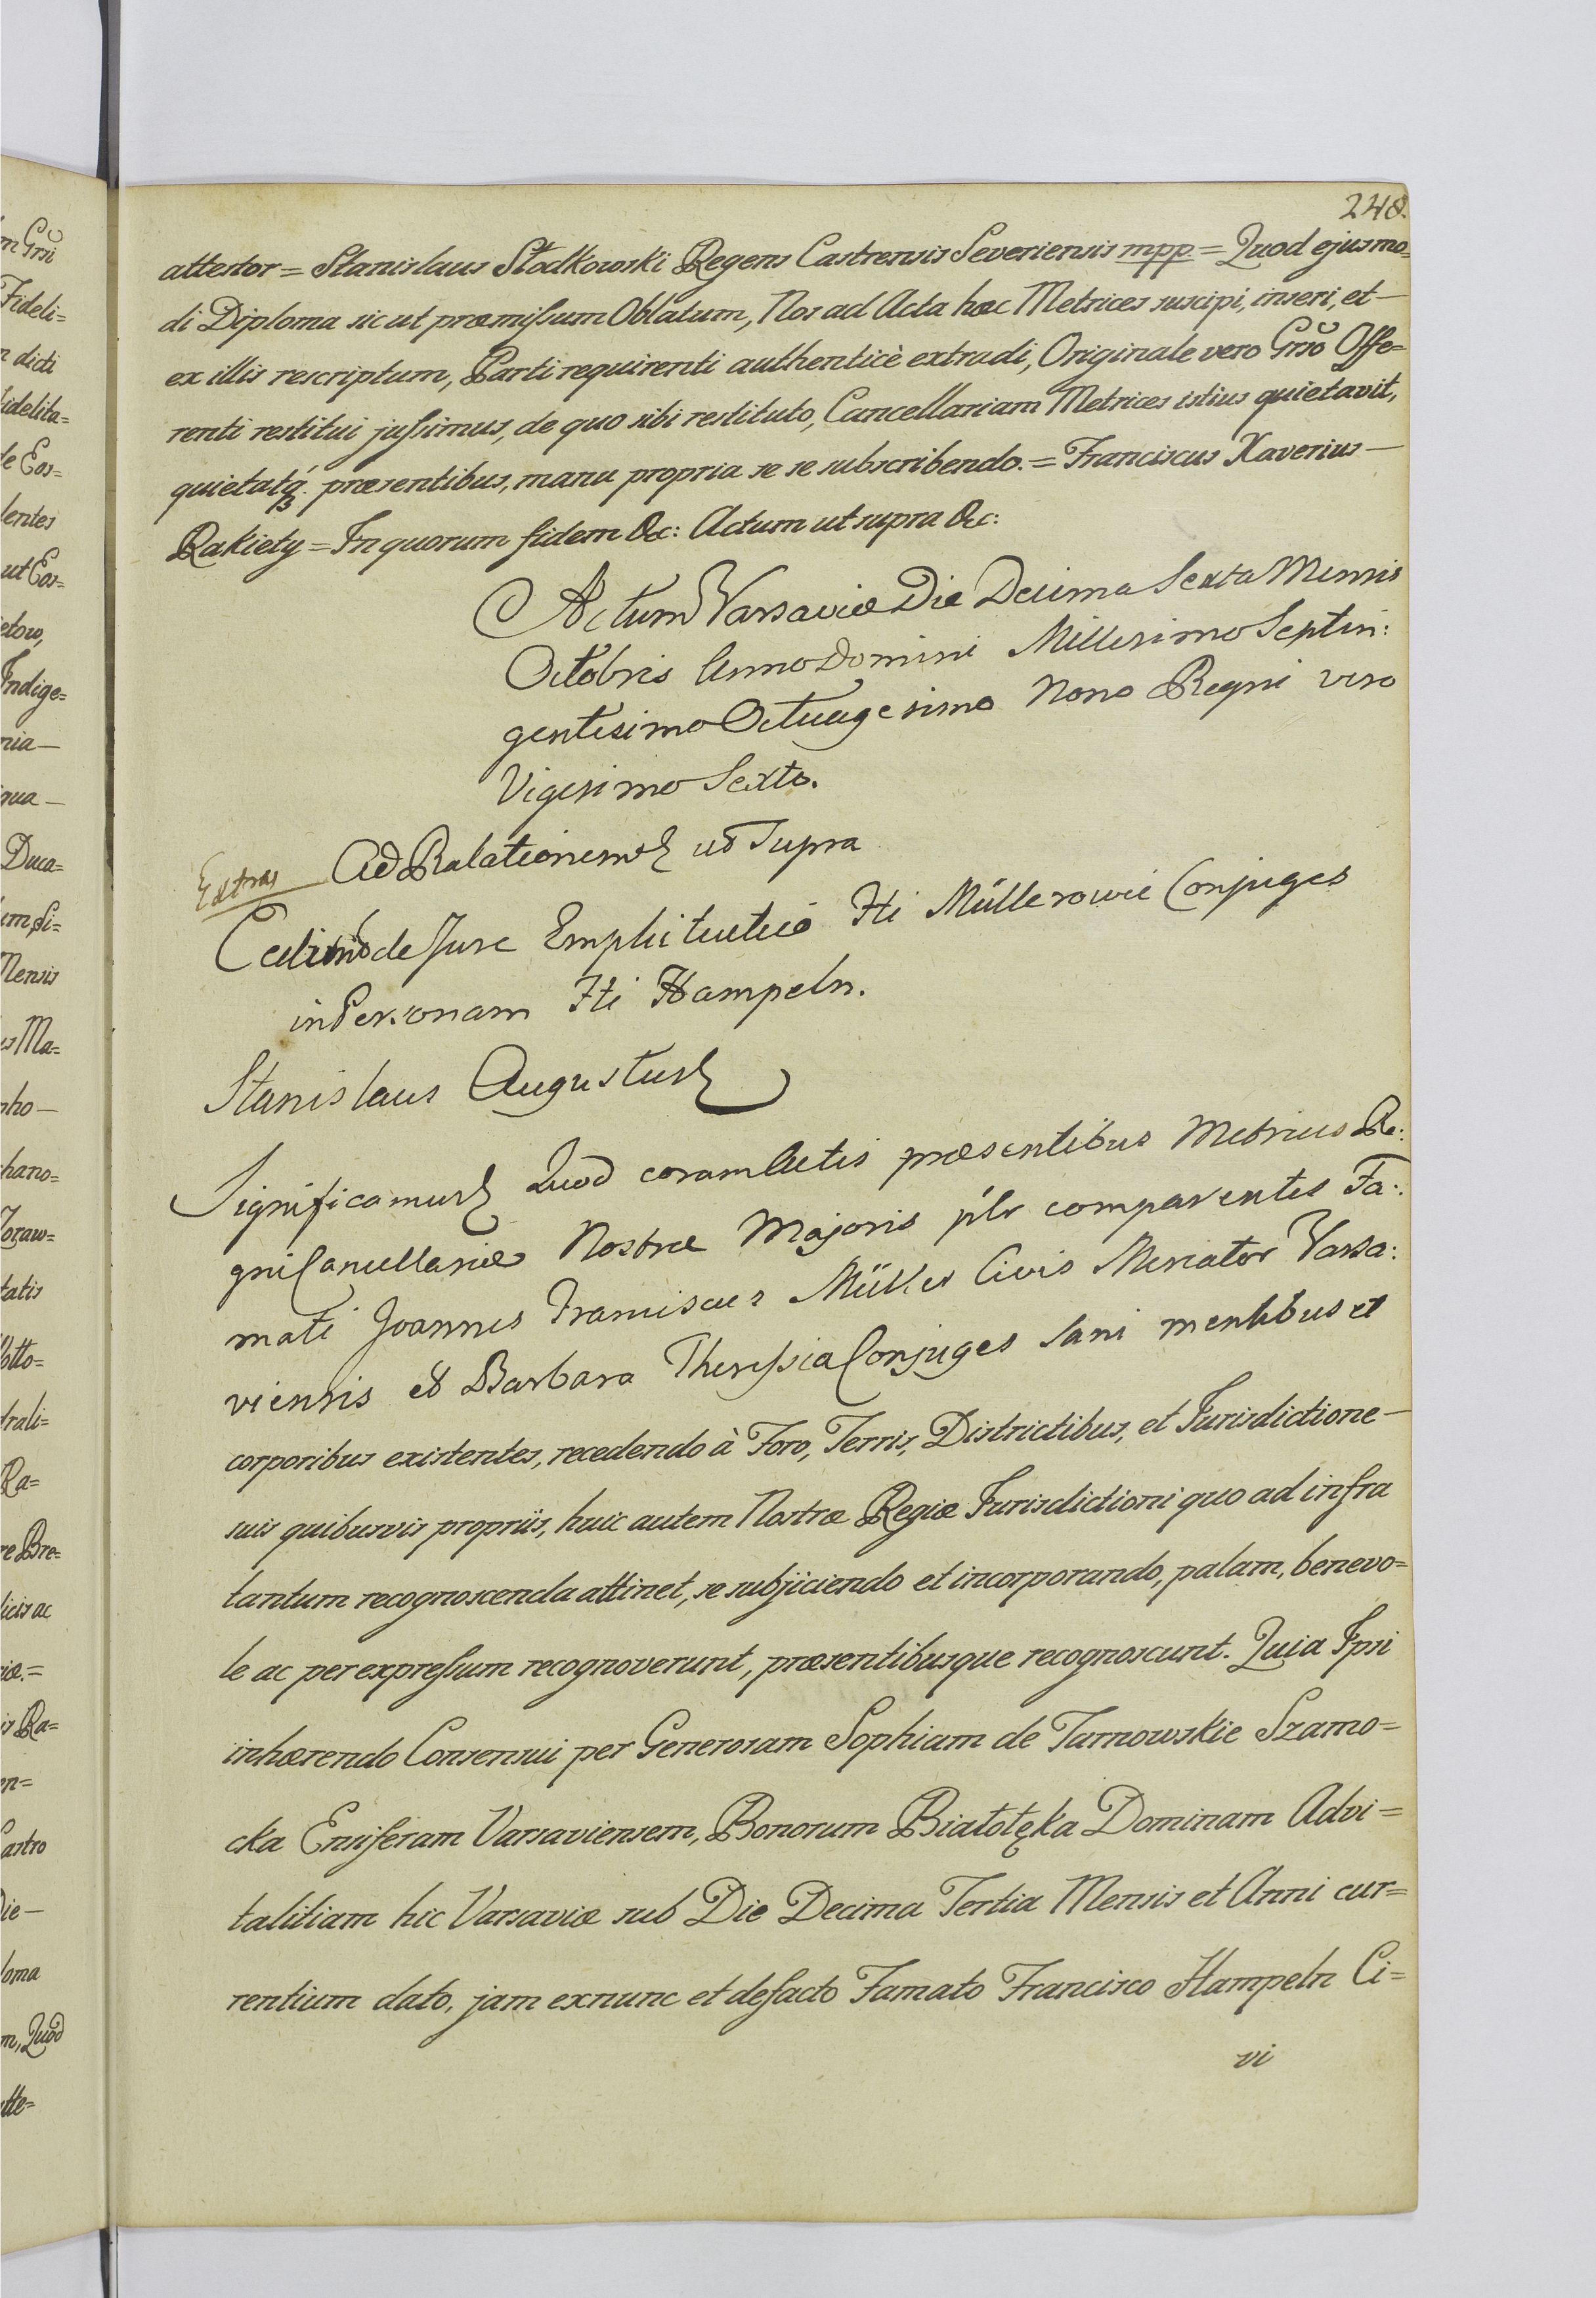 248.
attestor = Stanislaus Słodkowski Regens Castrensis Severiensis mpp = Quod ejusmo=
di Diploma sic ut præmissum Oblatum, Nos ad Acta hæc Metrices suscipi, inseri, et —
ex illis rescriptum, Parti requirenti authenticè extradi, Originale vero Grso Offe=
renti restitui jussimus, de quo sibi restituto, Cancellariam Metrices istius quietavit,
quietatq. præsentibus, manu propria se se subscribendo. = Franciscus Xaverius —
Rakiety = In quorum fidem &c: Actum ut supra &c:
Actum Varsaviæ Die Decima Sexta Mensis
Octobris Anno Domini Millesimo Septin:
gentesimo Octuagesimo Nono Regni vero
Vigesimo Sexto.
Extras Ad Relationem ut Supra
de Jure Emphiteutico Hi Müllerowie Conjuges
in Personam Hti Hampeln.
Stanislaus Augustus
Significamus Quod coram Actis præsentibus Metrices Re:
gni Cancellariæ Nostræ Majoris plr comparentes Fa:
mati Joannes Franciscus Müller Civis Mercator Varsa:
viensis et Barbara Theressia Conjuges Sani mentibus et
corporibus existentes, recedendo à Foro, Terris, Districtibus, et Jurisdictione —
suis quibusvis propriis, huic autem Nostræ Regiæ Jurisdictioni quo ad infra
tantum recognoscenda attinet, se subjiciendo et incorporando, palam, benevo=
le ac per expressum recognoverunt, præsentibusque recognoscunt. Quia Ipsi
inhærendo Consensui per Generosam Sophiam de Tarnowskie Szamo=
cka Ensiferam Varsaviensem, Bonorum Białołęka Dominam Advi=
talitiam hic Varsaviæ sub Die Decima Tertia Mensis et Anni cur=
rentium dato, jam exnunc et defacto Famato Francisco Hampeln Ci=
vi